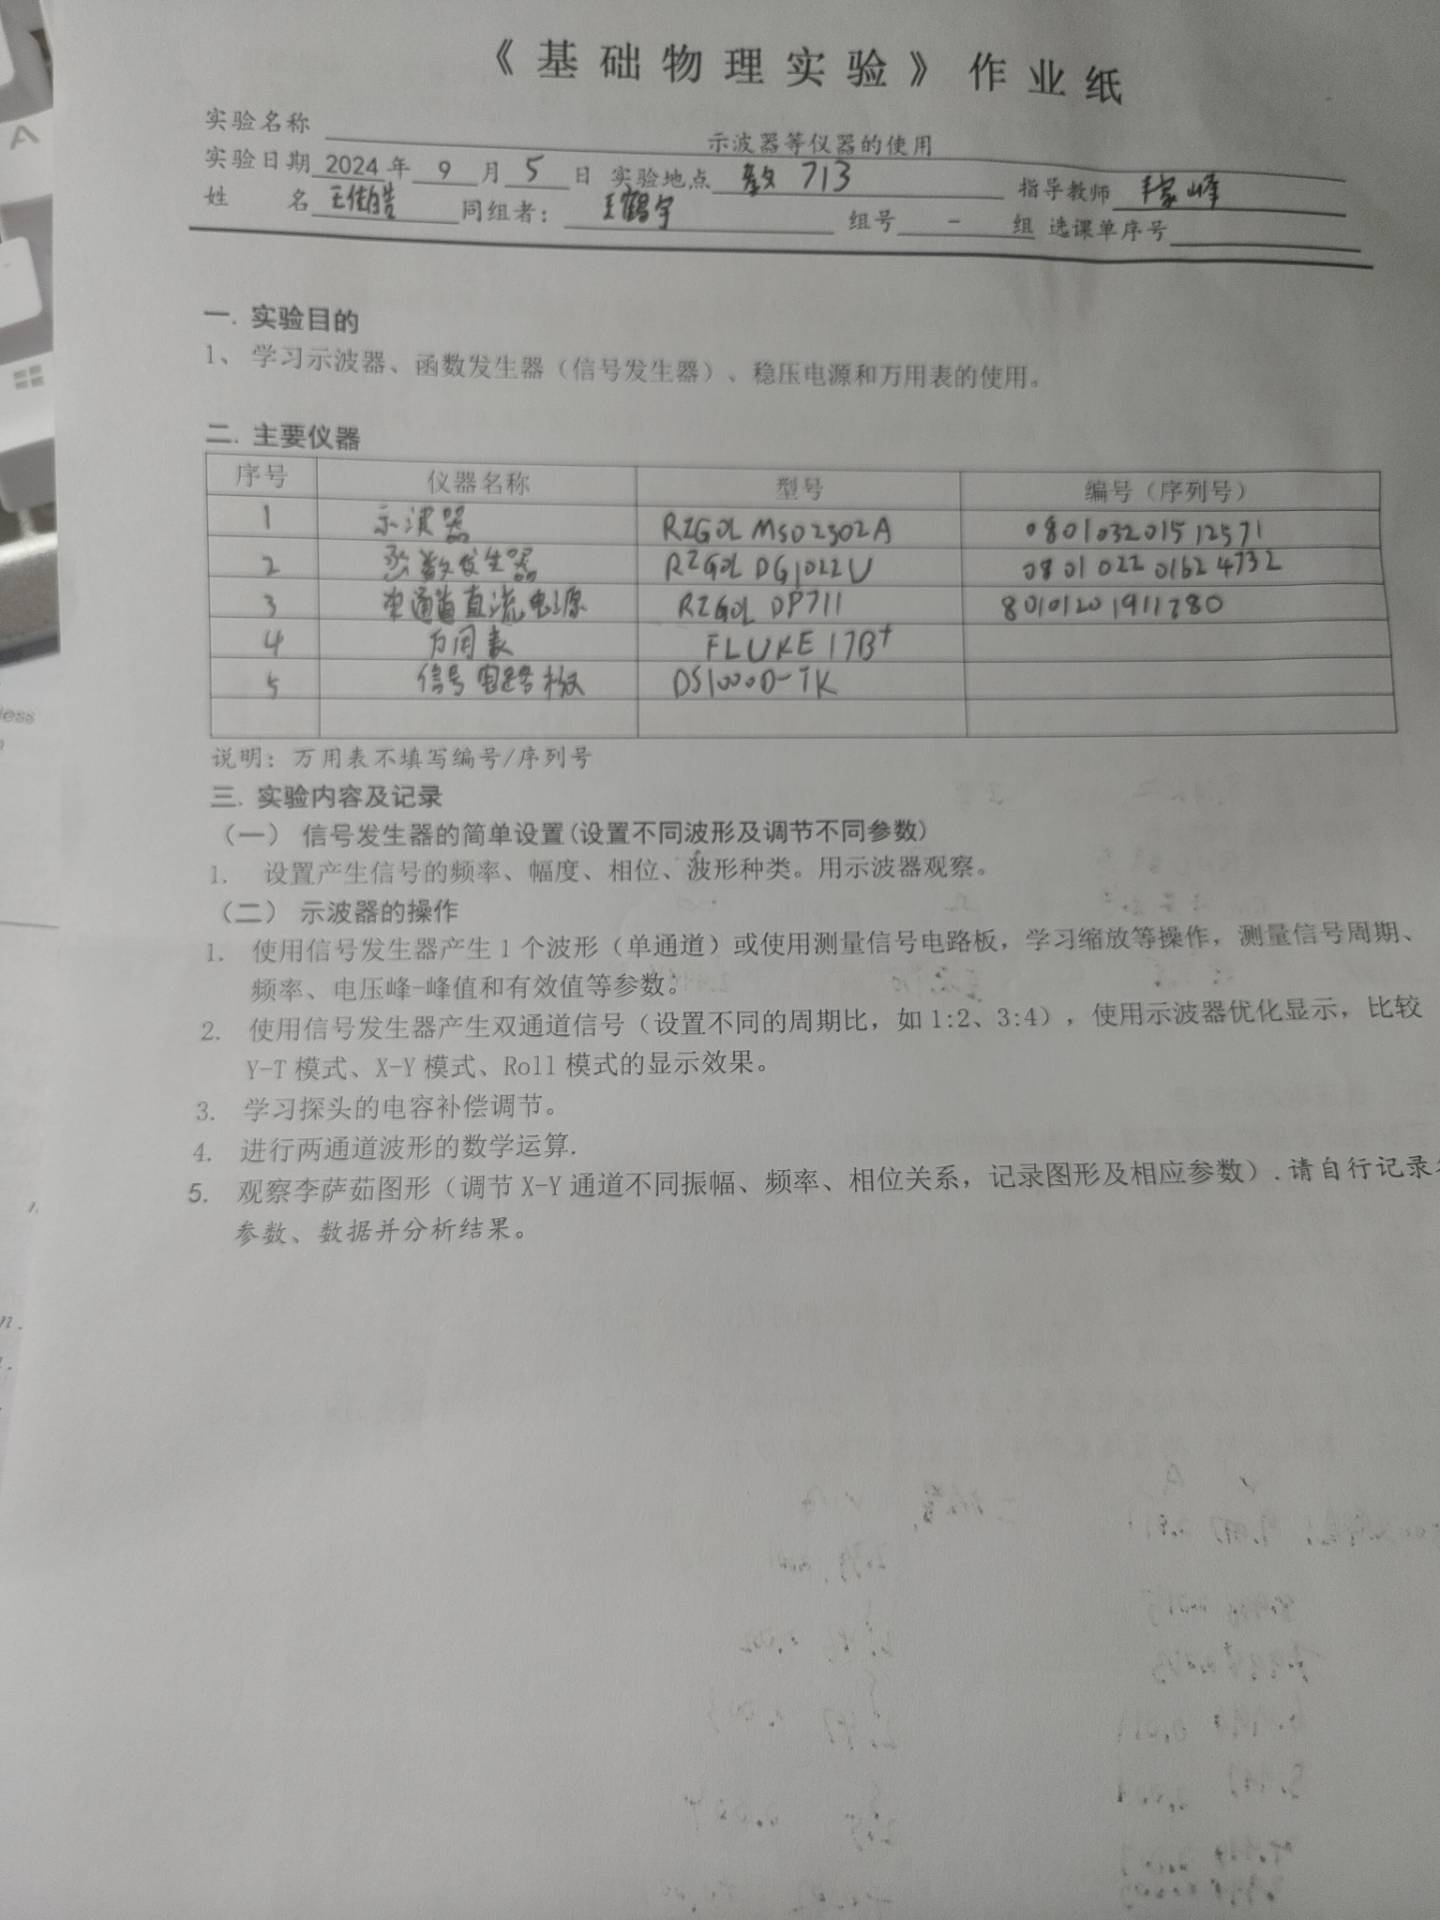 《基础物理实验》作业纸
实验名称 示波器等仪器的使用
实验日期 2024 年 9 月 5 日 实验地点 教 713 指导教师
姓 名 同组者： 王鹤宇 组号 - 组 选课单序号
一. 实验目的
1、 学习示波器、函数发生器（信号发生器）、稳压电源和万用表的使用。
二. 主要仪器
序号 仪器名称 型号 编号（序列号）
1 示波器 RIGOL MSO2302A 0801032015 12571
2 函数发生器 RIGOL DG1022U 0801022 01624732
3 单通道直流电源 RIGOL DP711 80101201911280
4 万用表 FLUKE 17B+
5 信号电路板 DS1000D-TK
说明：万用表不填写编号/序列号
三. 实验内容及记录
（一） 信号发生器的简单设置(设置不同波形及调节不同参数)
1. 设置产生信号的频率、幅度、相位、波形种类。用示波器观察。
（二） 示波器的操作
1. 使用信号发生器产生 1 个波形（单通道）或使用测量信号电路板，学习缩放等操作，测量信号周期、
频率、电压峰-峰值和有效值等参数。
2. 使用信号发生器产生双通道信号（设置不同的周期比，如 1:2、3:4），使用示波器优化显示，比较
Y-T 模式、X-Y 模式、Roll 模式的显示效果。
3. 学习探头的电容补偿调节。
4. 进行两通道波形的数学运算.
5. 观察李萨茹图形（调节 X-Y 通道不同振幅、频率、相位关系，记录图形及相应参数）.请自行记录
参数、数据并分析结果。